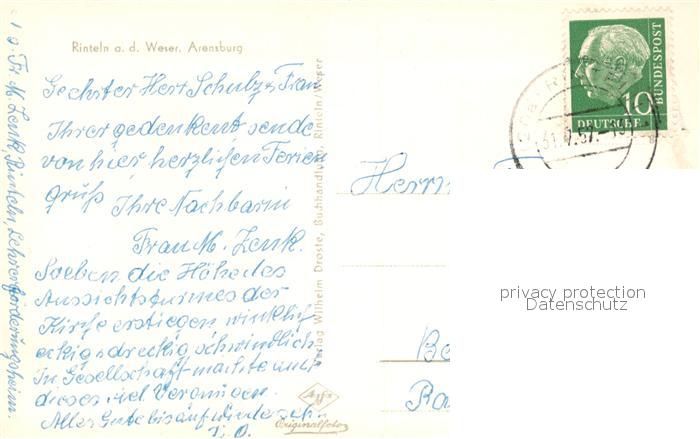 Rinteln a. d. Weser, Arensburg
Geehrter Herr Schulz & Frau
Ihrer gedenkent sende
von hier herzlichen Ferien
gruß Ihre Nachbarin
Frau M. Zenk.
Soeben die Höhe des
Aussichtsturmes der
Kirche erstiegen, winklig
eckig & dreckig schwindlich
In Gesellschaft machte uns
dieses viel Vergnügen.
Alles Gute bis auf wiederseh.
Fr. M. Zenk, Rinteln, Lehrerförderungsheim.
Verlag Wilhelm Droste, Buchhandlung, Rinteln/Weser
Originalfoto
10
DEUTSCHE
BUNDESPOST
Herrn
Be
Ba
privacy protection
Datenschutz